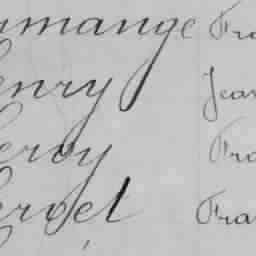 umange Fra
enry Jean
eroy Fra
ervel Fra